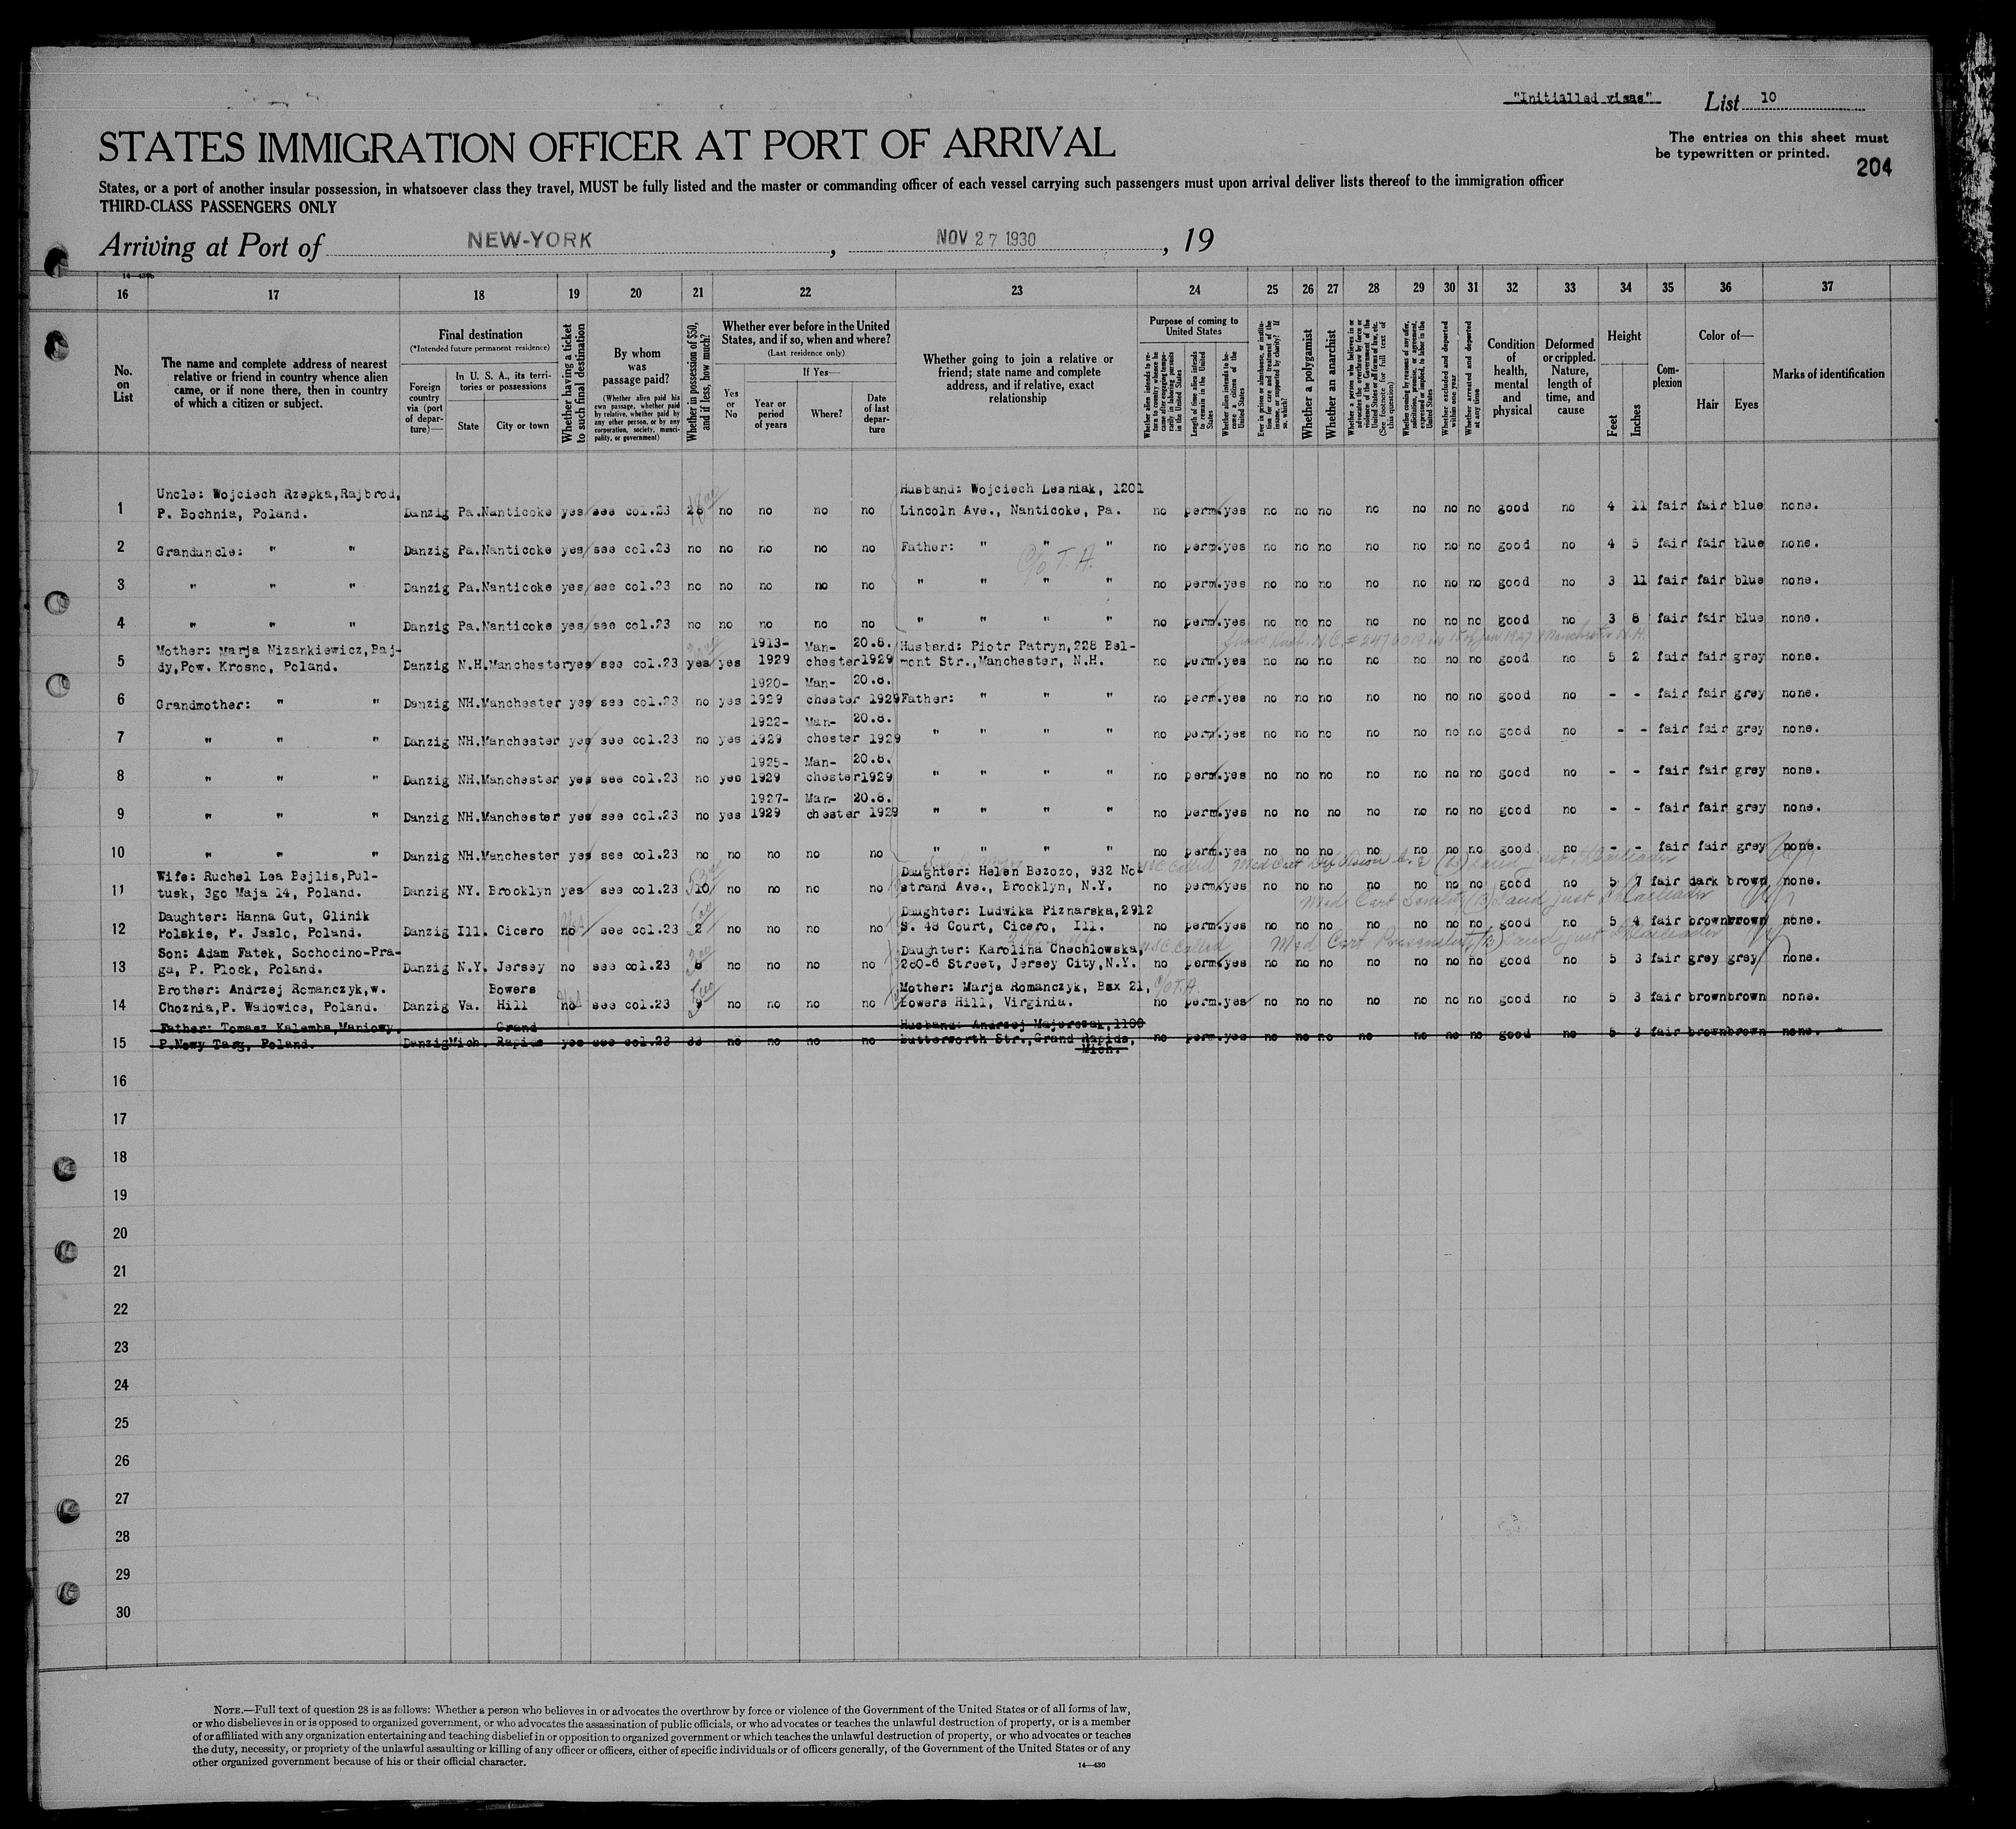 "Initialled visas" List 10
STATES IMMIGRATION OFFICER AT PORT OF ARRIVAL
The entries on this sheet must
be typewritten or printed.
204
States, or a port of another insular possession, in whatsoever class they travel, MUST be fully listed and the master or commanding officer of each vessel carrying such passengers must upon arrival deliver lists thereof to the immigration officer
THIRD-CLASS PASSENGERS ONLY
Arriving at Port of NEW-YORK, NOV 27 1930, 19
16 17 18 19 20 21 22 23 24 25 26 27 28 29 30 31 32 33 34 35 36 37
No. on List
The name and complete address of nearest relative or friend in country whence alien came, or if none there, then in country of which a citizen or subject.
Final destination
(*Intended future permanent residence)
Foreign country via (port of departure)—
In U. S. A., its territories or possessions
State
City or town
Whether having a ticket to such final destination
By whom was passage paid?
(Whether alien paid his own passage, whether paid by relative, whether paid by any other person, or by any corporation, society, municipality, or government)
Whether in possession of $50, and if less, how much?
Whether ever before in the United States, and if so, when and where?
(Last residence only)
Yes or No
If Yes—
Year or period of years
Where?
Date of last departure
Whether going to join a relative or friend; state name and complete address, and if relative, exact relationship
Purpose of coming to United States
Length of time alien intends to remain in the United States
Whether alien intends to become a citizen of the United States
Whether a polygamist
Whether an anarchist
(See footnote for full text of this question)
Whether excluded and deported within one year
Whether arrested and deported at any time
Condition of health, mental and physical
Deformed or crippled. Nature, length of time, and cause
Height
Feet
Inches
Complexion
Color of—
Hair
Eyes
Marks of identification
Uncle: Wojciech Rzepka, Rajbrod, Husband: Wojciech Lesniak, 1201
1 P. Bochnia, Poland. Danzig Pa. Nanticoke yes see col.23 26 no no no no Lincoln Ave., Nanticoke, Pa. no perm. yes no no no no no no no good no 4 11 fair fair blue none.
2 Granduncle: " " Danzig Pa. Nanticoke yes see col.23 no no no no no Father: " " " no perm. yes no no no no no no no good no 4 5 fair fair blue none.
C/o T.A.
3 " " " Danzig Pa. Nanticoke yes see col.23 no no no no no " " " " no perm. yes no no no no no no no good no 3 11 fair fair blue none.
4 " " " Danzig Pa. Nanticoke yes see col.23 no no no no no " " " " no perm. yes no no no no no no no good no 3 8 fair fair blue none.
Mother: Marja Nizankiewicz, Baj- 1913- Man- 20.8. Husband: Piotr Patryn, 228 Bel-
5 dy, Pow. Krosno, Poland. Danzig N.H. Manchester yes see col.23 yes yes 1929 chester 1929 mont Str., Manchester, N.H. no perm. yes no no no no no no no good no 5 2 fair fair grey none.
1920- Man- 20.8.
6 Grandmother: " " Danzig NH. Manchester yes see col.23 no yes 1929 chester 1929 Father: " " " no perm. yes no no no no no no no good no - - fair fair grey none.
1922- Man- 20.8.
7 " " " Danzig NH. Manchester yes see col.23 no yes 1929 chester 1929 " " " " no perm. yes no no no no no no no good no - - fair fair grey none.
1925- Man- 20.8.
8 " " " Danzig NH. Manchester yes see col.23 no yes 1929 chester 1929 " " " " no perm. yes no no no no no no no good no - - fair fair grey none.
1927- Man- 20.8.
9 " " " Danzig NH. Manchester yes see col.23 no yes 1929 chester 1929 " " " " no perm. yes no no no no no no no good no - - fair fair grey none.
10 " " " Danzig NH. Manchester yes see col.23 no no no no no " " " " no perm. yes no no no no no no no good no - - fair fair grey none.
Wife: Ruchel Lea Bejlis, Pul- Daughter: Helen Bezozo, 932 No-
11 tusk, 3go Maja 14, Poland. Danzig NY. Brooklyn yes see col.23 10 no no no no strand Ave., Brooklyn, N.Y. no perm. yes no no no no no no no good no 5 7 fair dark brown none.
Daughter: Hanna Gut, Glinik Daughter: Ludwika Piznarska, 2912
12 Polskie, P. Jaslo, Poland. Danzig Ill. Cicero no see col.23 2 no no no no S. 48 Court, Cicero, Ill. no perm. yes no no no no no no no good no 5 4 fair brown brown none.
Son: Adam Fatek, Sochocino-Pra- Daughter: Karolina Chechlowska,
13 ga, P. Plock, Poland. Danzig N.Y. Jersey no see col.23 no no no no 280-6 Street, Jersey City, N.Y. no perm. yes no no no no no no no good no 5 3 fair grey grey none.
Brother: Andrzej Romanczyk, w. Bowers Mother: Marja Romanczyk, Box 21, C/o T.A.
14 Choznia, P. Wadowice, Poland. Danzig Va. Hill no see col.23 no no no no Bowers Hill, Virginia. no perm. yes no no no no no no no good no 5 3 fair brown brown none.
Father: Tomasz Kalemba, Maniowy, Grand Husband: Andrzej Majerczak, 1100
15 P. Nowy Targ, Poland. Danzig Mich. Rapids yes see col.23 33 no no no no Butterworth Str., Grand Rapids, no perm. yes no no no no no no no good no 5 3 fair brown brown none.
Mich.
16
17
18
19
20
21
22
23
24
25
26
27
28
29
30
NOTE.—Full text of question 28 is as follows: Whether a person who believes in or advocates the overthrow by force or violence of the Government of the United States or of all forms of law,
or who disbelieves in or is opposed to organized government, or who advocates the assassination of public officials, or who advocates or teaches the unlawful destruction of property, or is a member
of or affiliated with any organization entertaining and teaching disbelief in or opposition to organized government or which teaches the unlawful destruction of property, or who advocates or teaches
the duty, necessity, or propriety of the unlawful assaulting or killing of any officer or officers, either of specific individuals or of officers generally, of the Government of the United States or of any
other organized government because of his or their official character.
14—430